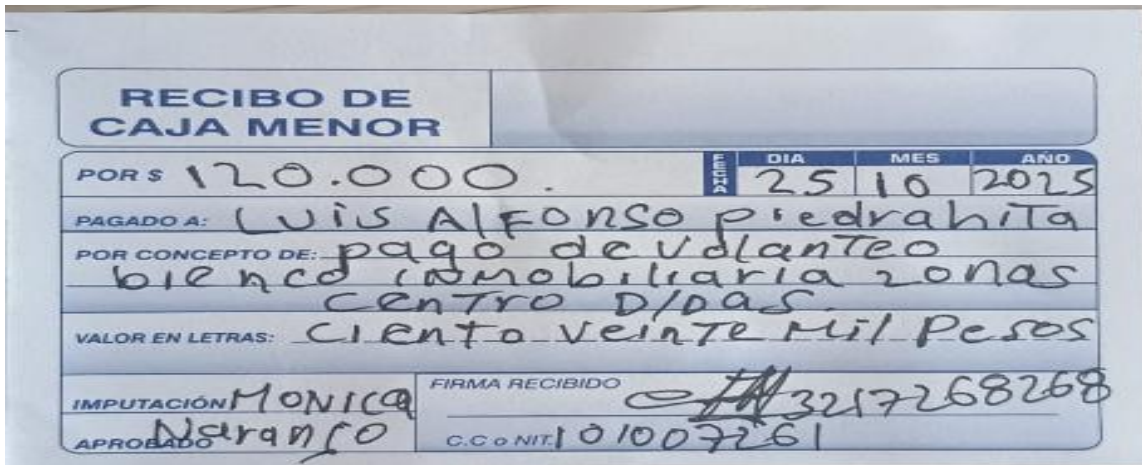 RECIBO DE
CAJA MENOR
POR $ 120.000.
FECHA
DIA MES AÑO
25 10 2025
PAGADO A: LUIS AlFONSO piedrahiTa
POR CONCEPTO DE: pago de VolanTeo
bienco inmobiliaria zonas
cenTro D/Das.
VALOR EN LETRAS: CIENTo VeinTe Mil Pesos
IMPUTACIÓN MONICa
APROBADO Naranjo
FIRMA RECIBIDO
3217268268
C.C o NIT. 1010077261